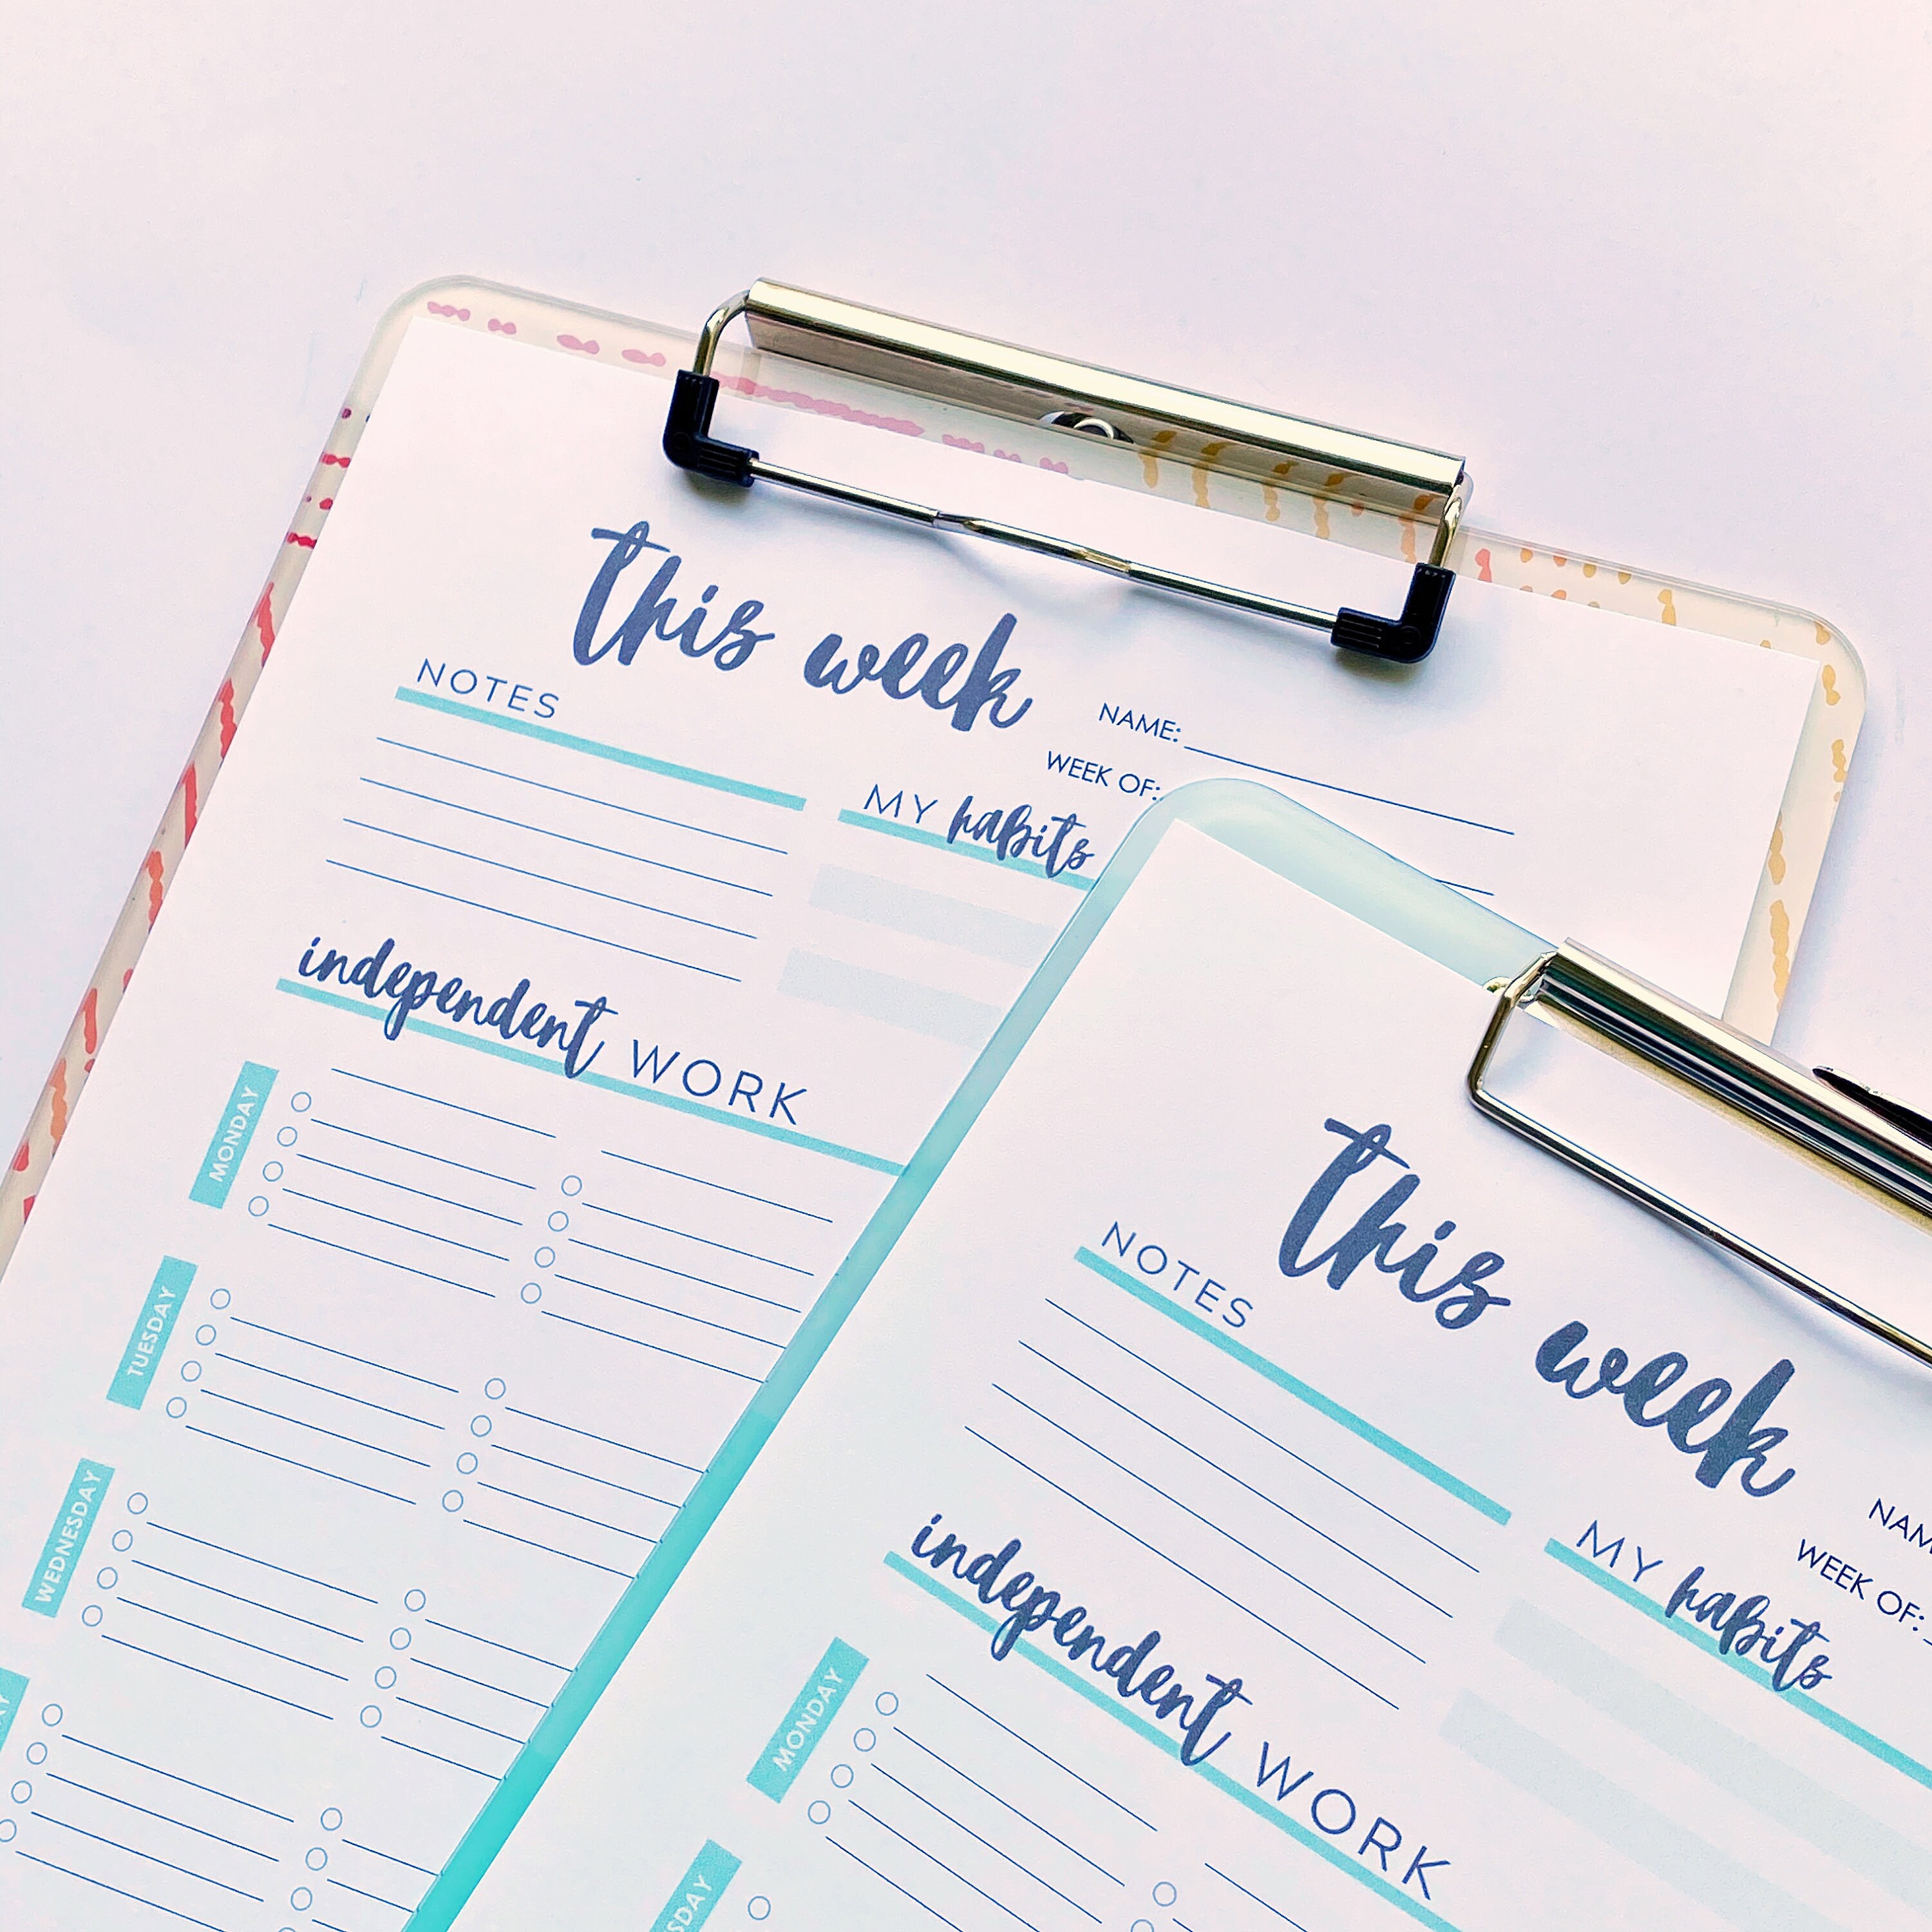 this week
NOTES
NAME:
WEEK OF:
MY habits
independent WORK
MONDAY
TUESDAY
WEDNESDAY
this week
NOTES
NAM
WEEK OF:
MY habits
independent WORK
MONDAY
SDAY